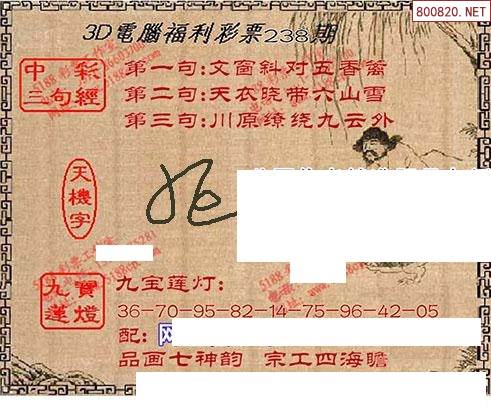 800820.NET
3D電腦福利彩票238期
中彩
三句經
第一句:文窗斜对五香篱
第二句:天衣晓带六山雪
第三句:川原缭绕九云外
天機字
九寶
蓮燈
九宝莲灯:
36-70-95-82-14-75-96-42-05
配:
品画七神韵 宗工四海瞻